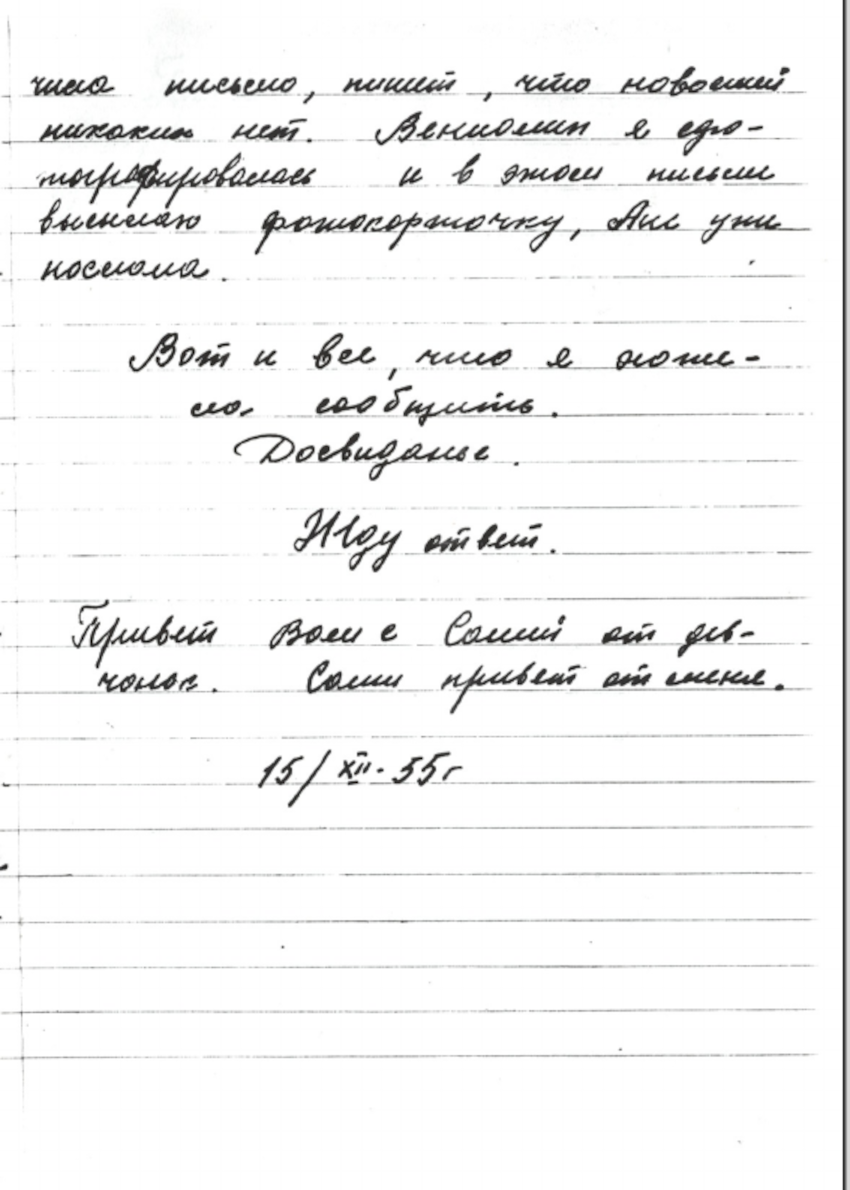 числа письмо, пишет, что новостей
никаких нет. Вениамин я сфо-
тографировалась и в этом письме
высылаю фотокарточку, Ане уже
послала.
Вот и все, что я хоте-
ла сообщить.
Досвиданье.
Жду ответ.
Привет Вам с Сашей от дев-
чонок. Саши привет от меня.
15/XII-55г